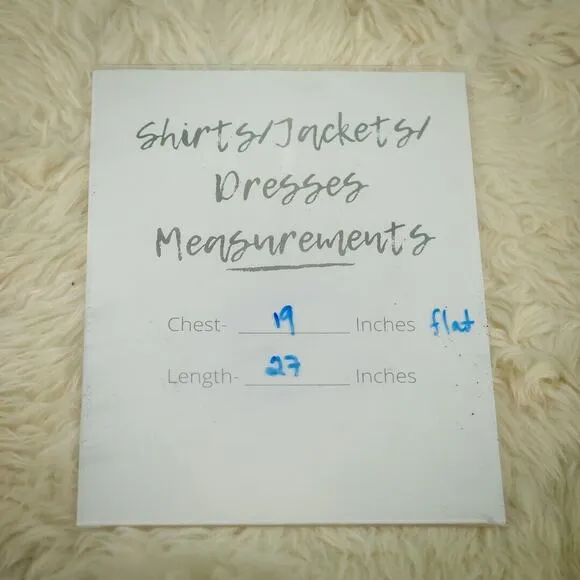 Shirts/Jackets/
Dresses
Measurements
Chest- 19 Inches flat
Length- 27 Inches